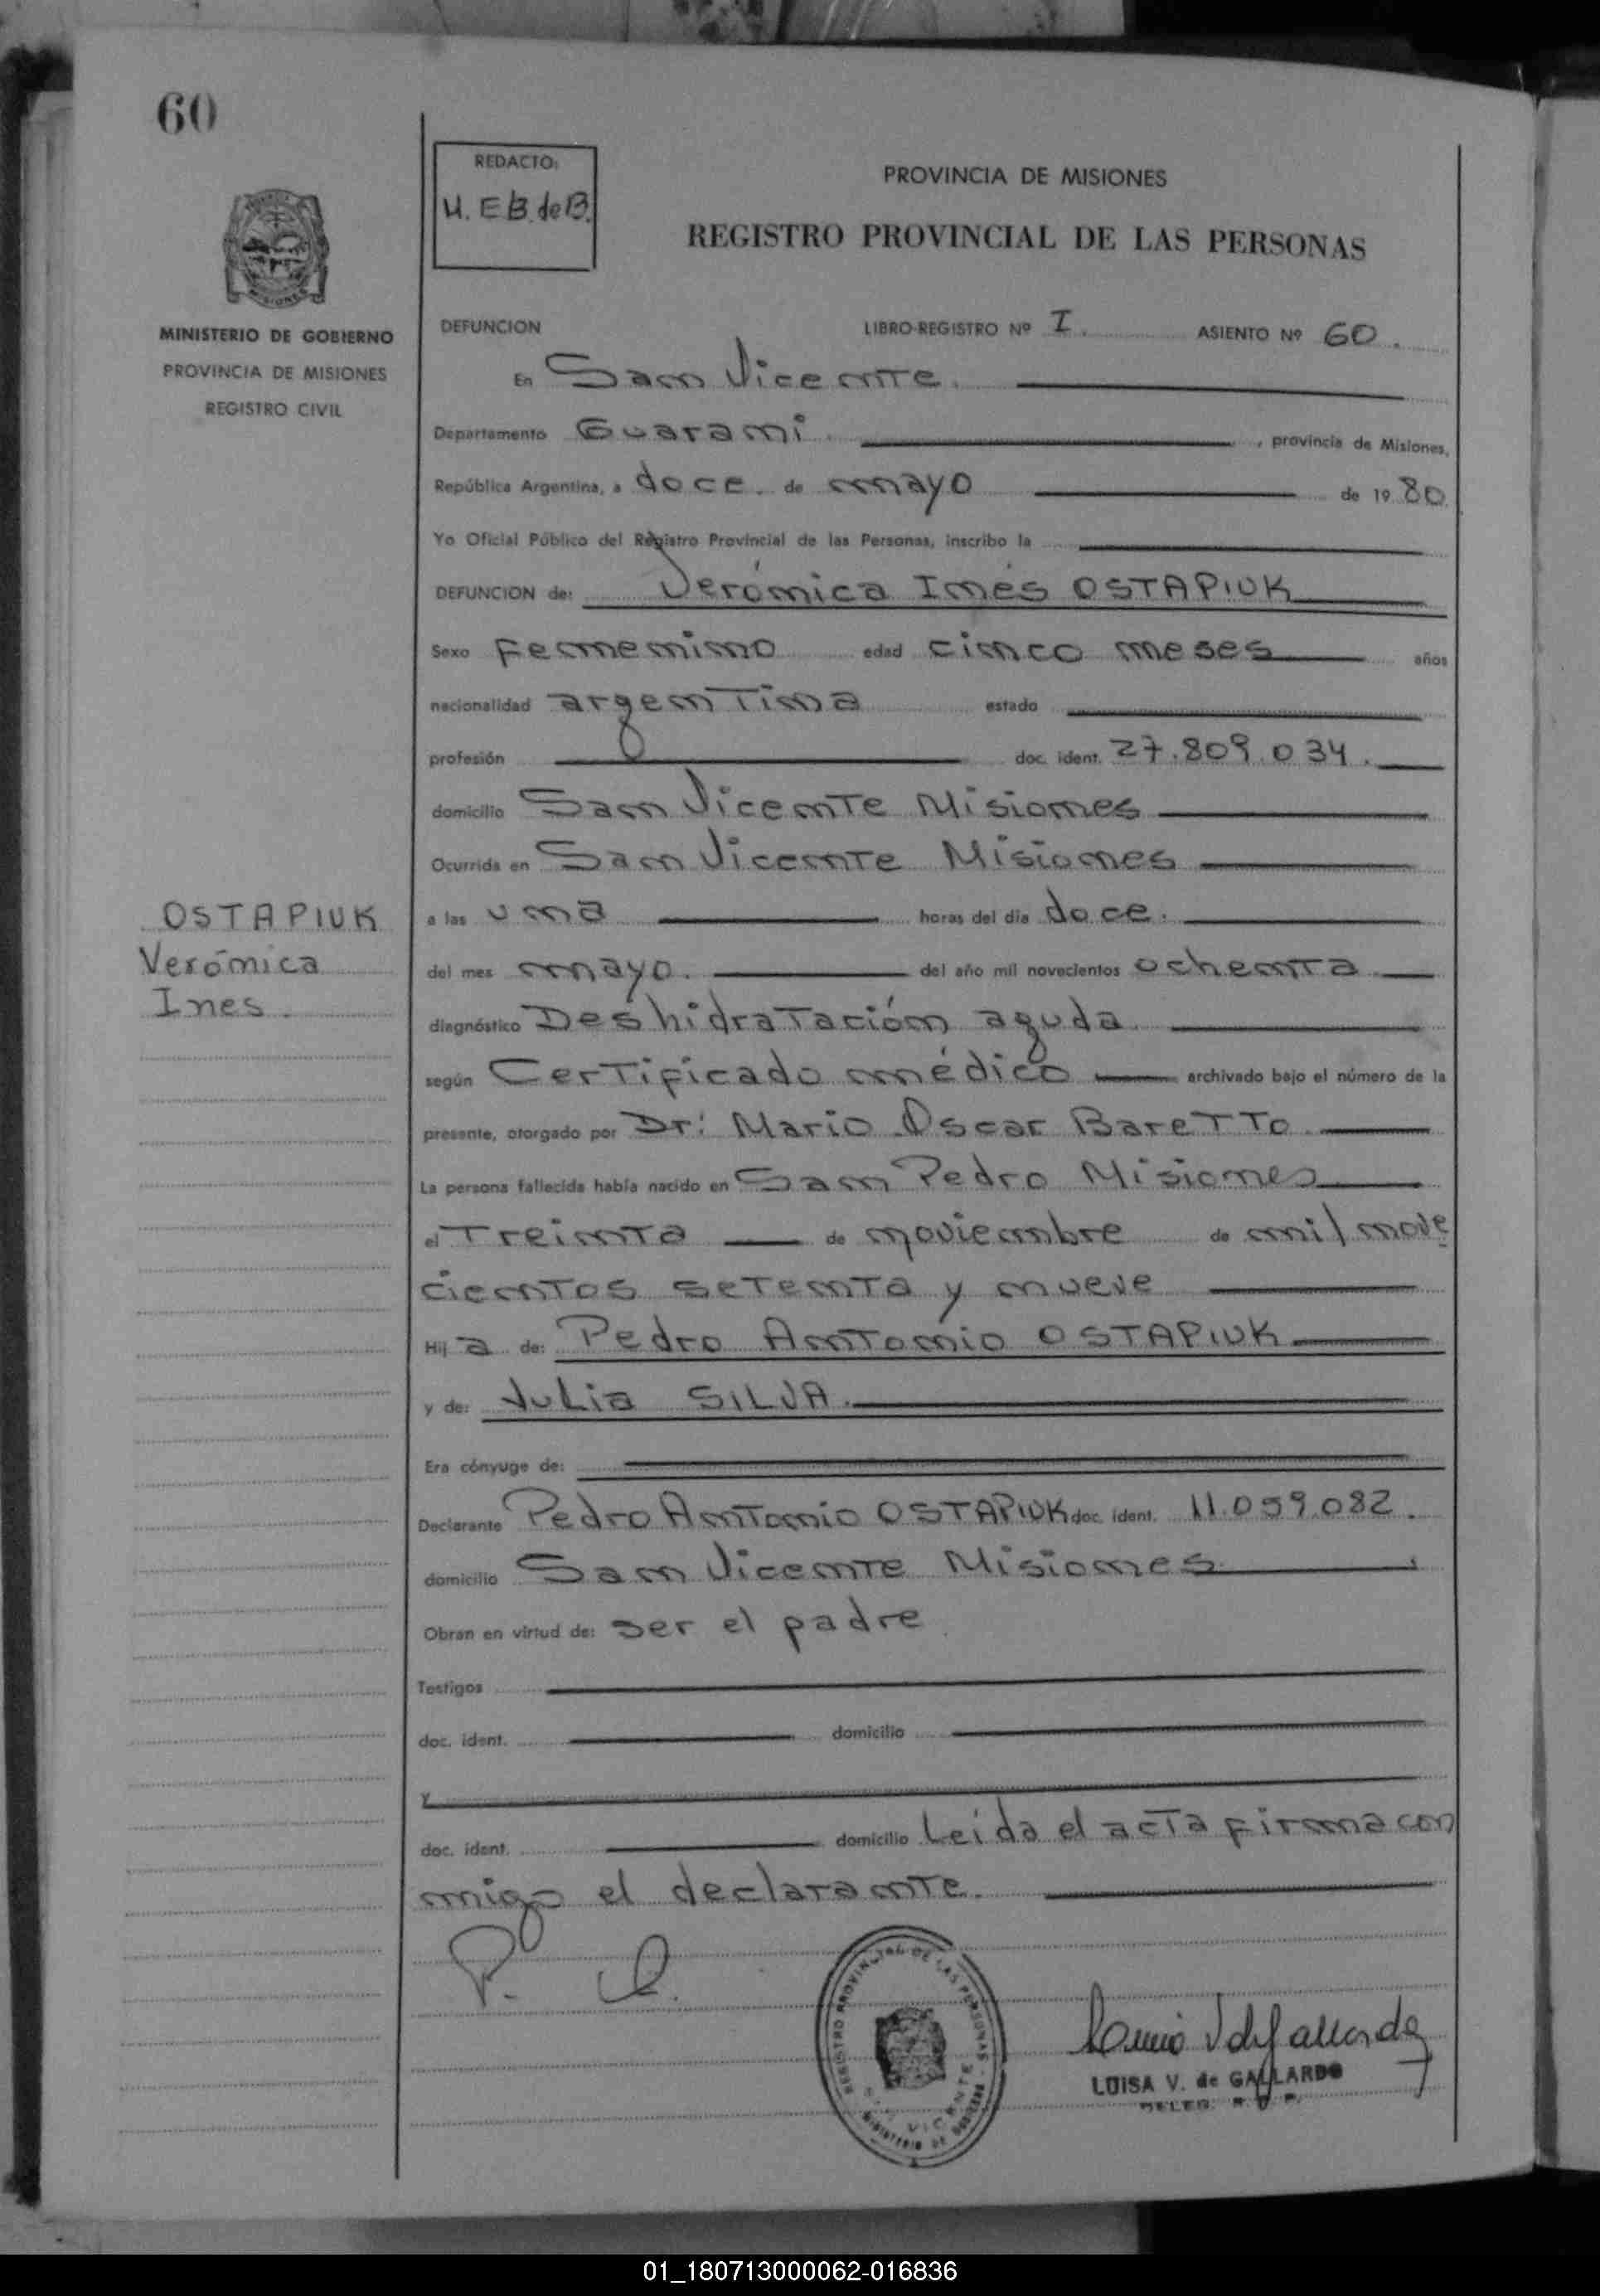 60
REDACTO:
U. E B. de B.
PROVINCIA DE MISIONES
REGISTRO PROVINCIAL DE LAS PERSONAS
MINISTERIO DE GOBIERNO
PROVINCIA DE MISIONES
REGISTRO CIVIL
DEFUNCION LIBRO-REGISTRO Nº I. ASIENTO Nº 60.
En San Vicente.
Departamento Guarani. , provincia de Misiones,
República Argentina, a doce. de mayo de 19 80.
Yo Oficial Público del Registro Provincial de las Personas, inscribo la
DEFUNCION de: Verónica Inés OSTAPIUK
Sexo Femenino edad cinco meses años
nacionalidad argentina estado
profesión doc. ident. 27.809.034.
domicilio San Vicente Misiones
Ocurrida en San Vicente Misiones
a las una horas del día doce.
del mes mayo. del año mil novecientos ochenta
diagnóstico Deshidratación aguda
según Certificado médico archivado bajo el número de la
presente, otorgado por Dr: Mario Oscar Baretto.
La persona fallecida había nacido en San Pedro Misiones
el Treinta de noviembre de mil nove
cientos setenta y nueve
Hij a de: Pedro Antonio OSTAPIUK
y de: Julia SILVA.
Era cónyuge de:
Declarante Pedro Antonio OSTAPIUK doc. ident. 11.059.082.
domicilio San Vicente Misiones
Obran en virtud de: ser el padre.
Testigos
doc. ident. domicilio
y
doc. ident. domicilio Leida el acta firma con
migo el declarante.
OSTAPIUK
Verónica
Ines.
P. O.
REGISTRO PROVINCIAL DE LAS PERSONAS
VICENTE
MINISTERIO DE GOBIERNO
LUISA V. de GALLARDO
DELEG. R. P. P.
01_180713000062-016836